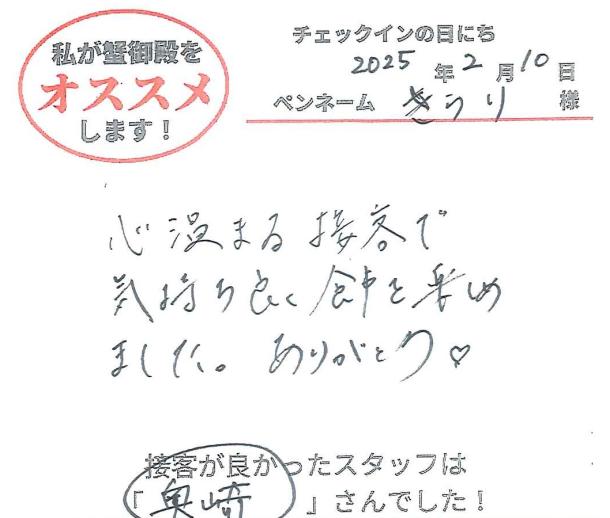 私が蟹御殿を
オススメ
します！
チェックインの日にち
2025年2月10日
ペンネーム きらり 様
心温まる接客で
気持ち良く食事を楽しめ
ました。ありがとう♡
接客が良かったスタッフは
「奥崎」さんでした！